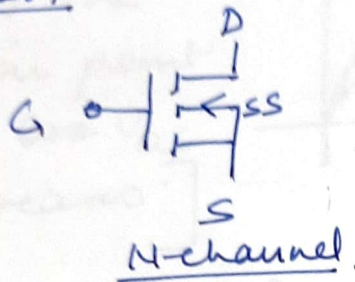 D
G
SS
S
N-channel